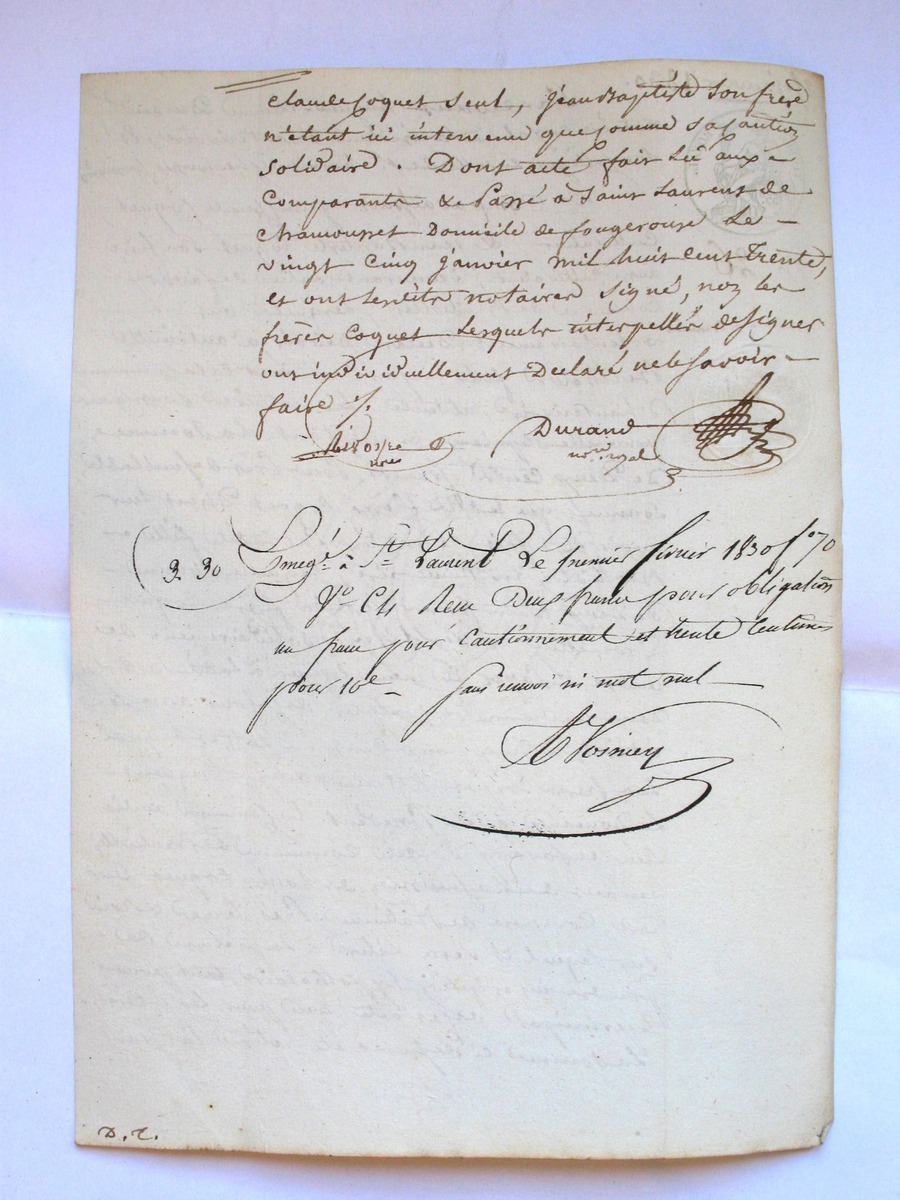 Claude Coquet seul, jean Baptiste son frere
n'etant ici intervenu que comme sa caution
solidaire. Dont acte fait lu aux
Comparants & Passé à Saint Laurent de
Chamousset Domicile de fougerouse Le
vingt Cinq janvier mil huit cent trente,
et ont lesdits notaires signé, non les
freres Coquet Lesquels interpellés de signer
ont individuellement Declaré ne le savoir
faire /.
Durand
nore royal
3. 30 Enregé. à St. Laurent Le premier fevrier 1830 fo 70
Vo C4 Recu Deux francs pour obligation
un franc pour Cautionnement et trente Centimes
pour 10e sans renvoi ni mot nul
D. C.